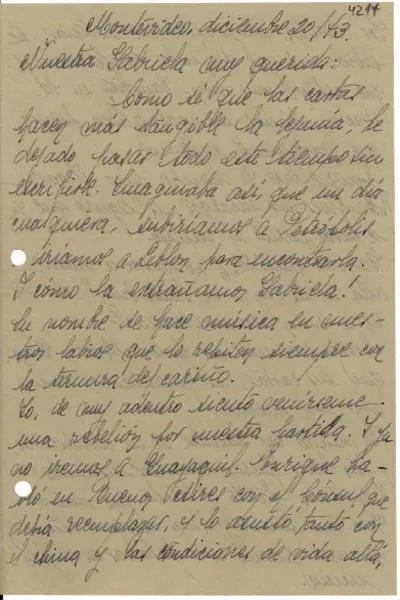 4217
Montevideo, diciembre 20/43.
Nuestra Gabriela muy querida:
Como sé que las cartas
hacen más tangible la lejanía, he
dejado pasar todo este tiempo sin
escribirle. Imaginaba así, que un día
cualquiera, subiríamos a Petrópolis
iríamos a Leblon para encontrarla.
I cómo la extrañamos Gabriela!
Su nombre se hace música en nues-
tros labios que lo repiten siempre con
la ternura del cariño.
Yo, de muy adentro siento venírseme
una rebelión por nuestra partida. I ya
no iremos a Guayaquil. Enrique ha-
bló en Buenos Aires con el Cónsul que
debía reemplazar, y lo asustó, tanto con
el clima y las condiciones de vida allá,